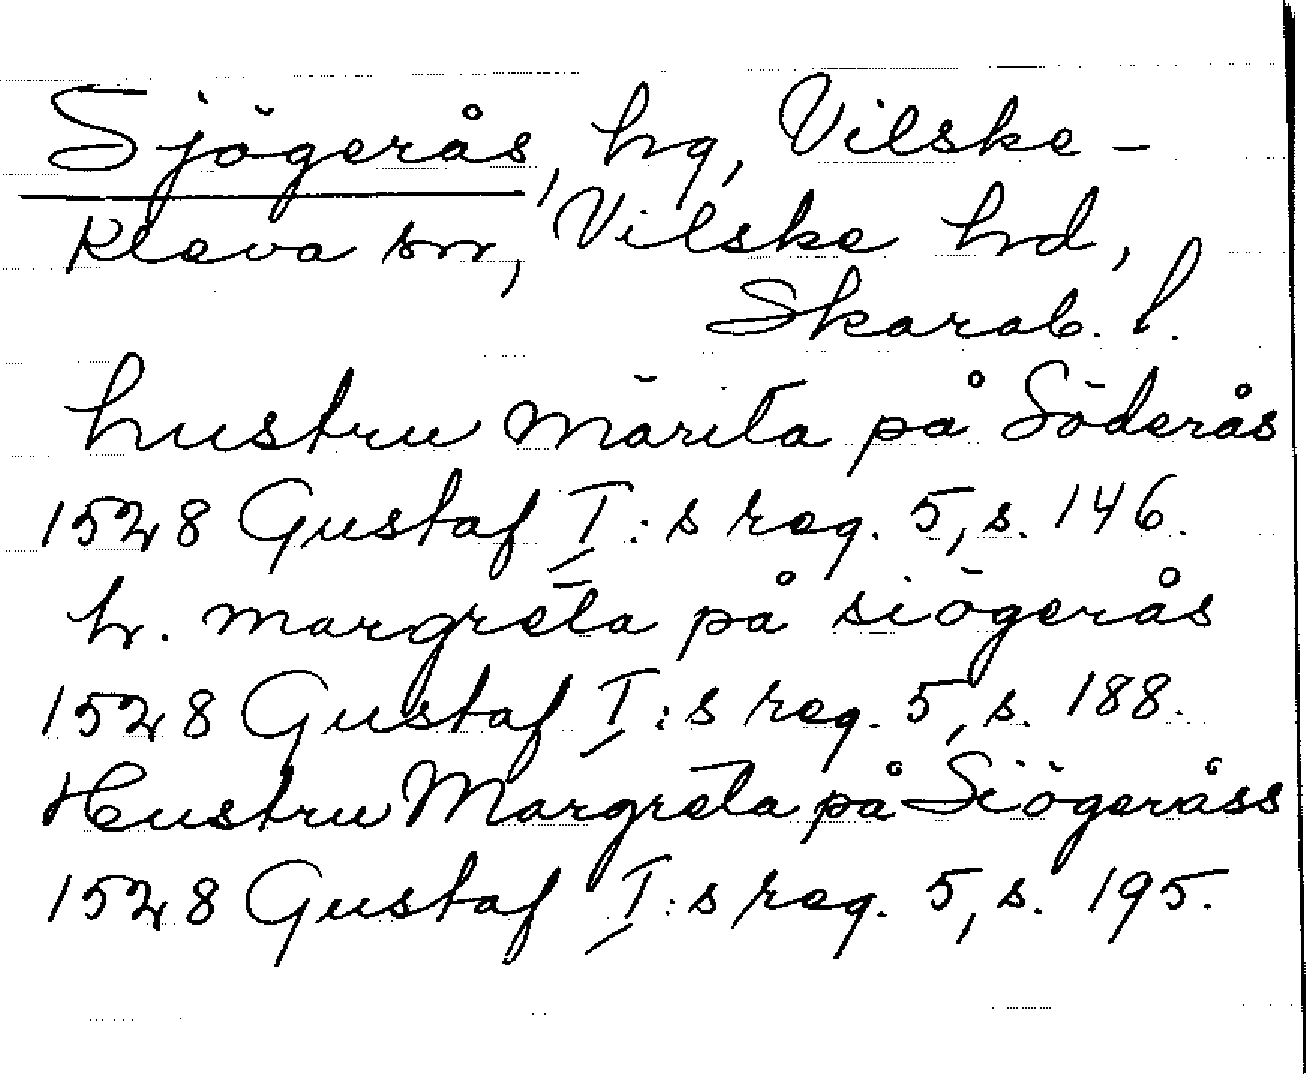 Sjögerås, hg, Vilske-
Kleva sn, Vilske hd,
Skarab. l.
hustru märita på Söderås
1528 Gustaf I:s reg. 5, s. 146.
h. margreta på siögerås
1528 Gustaf I:s reg. 5, s. 188.
Hustru Margreta på Siögeråss
1528 Gustaf I:s reg. 5, s. 195.